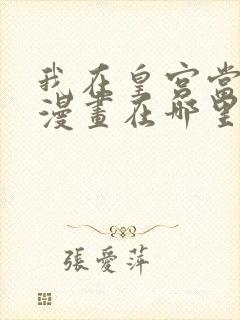 我在皇宫当
漫畫在哪里
張愛萍